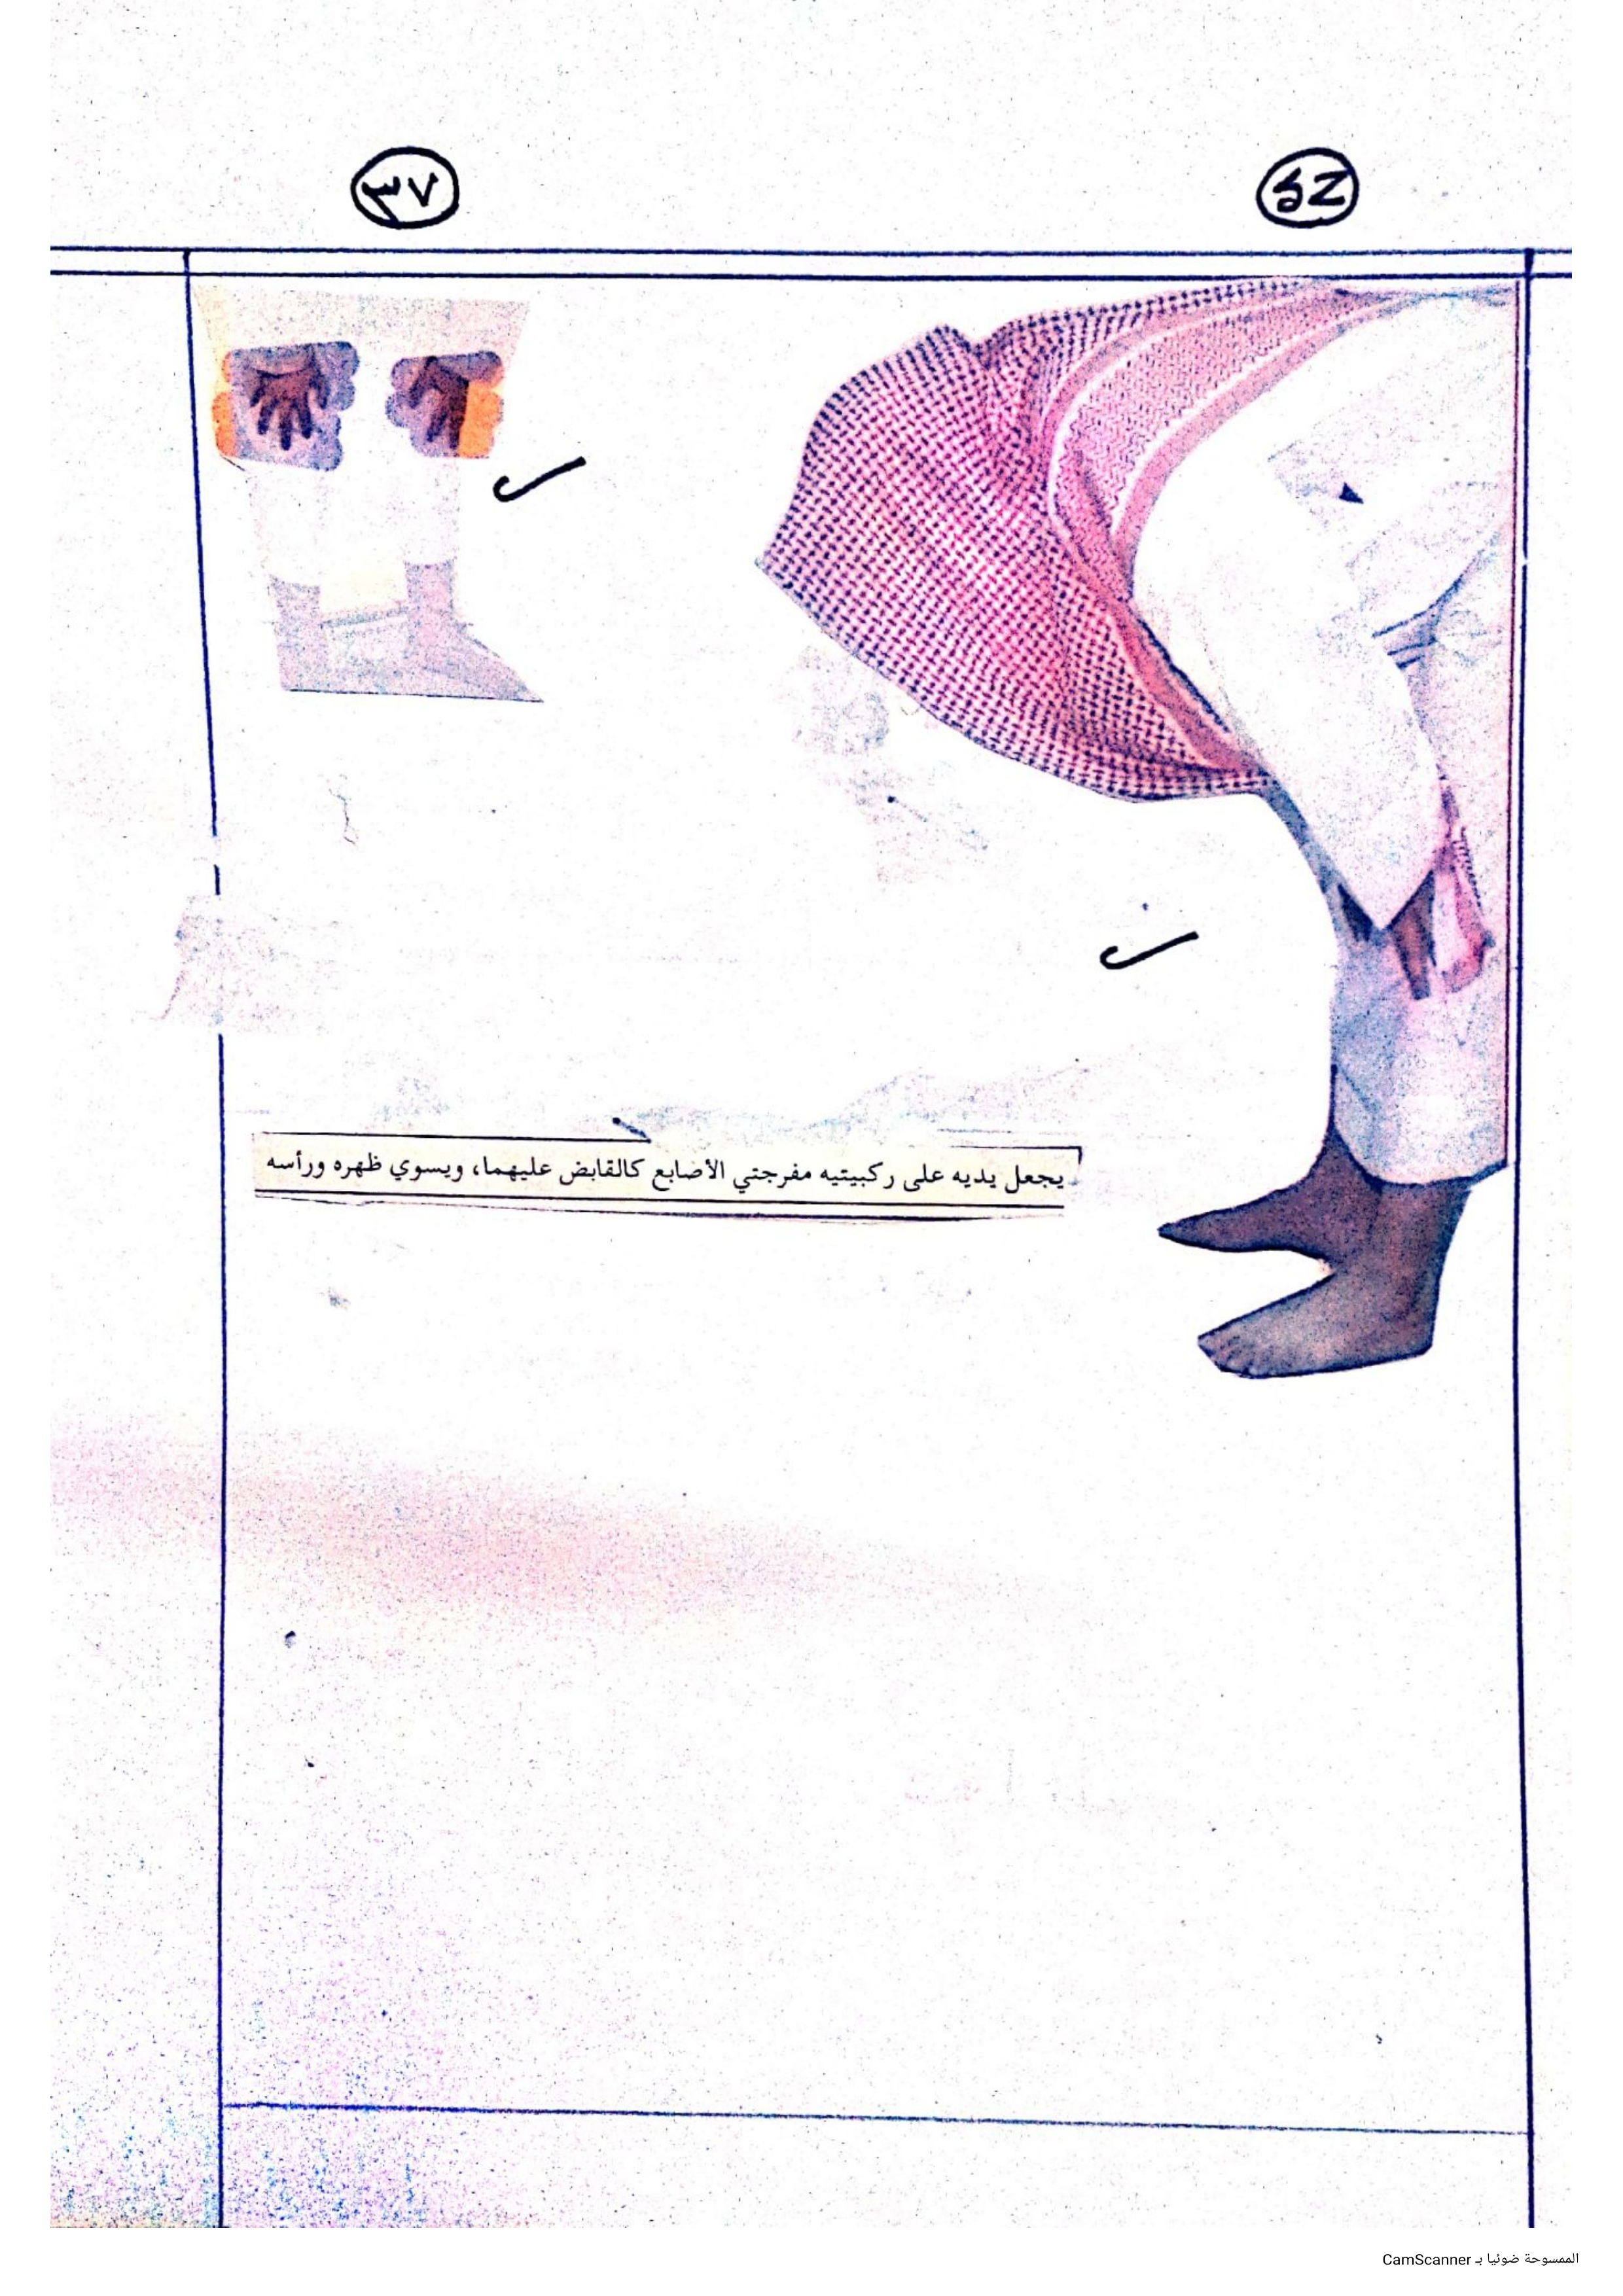 ٣٧
يجعل يديه على ركبيتيه مفرجتي الأصابع كالقابض عليهما، ويسوي ظهره ورأسه
الممسوحة ضوئيا بـ CamScanner